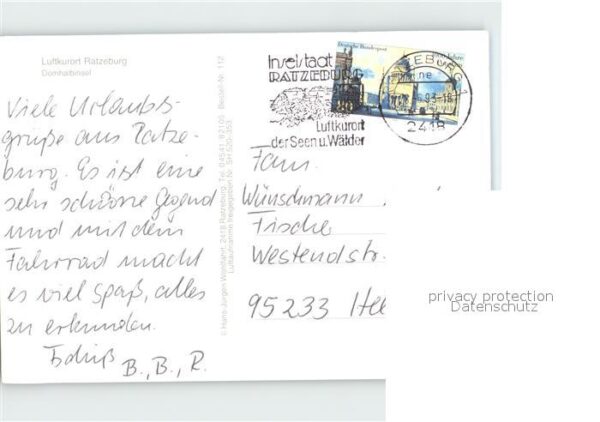 Luftkurort Ratzeburg
Domhalbinsel
Viele Urlaubs-
grüße aus Ratze-
burg. Es ist eine
sehr schöne Gegend
und mit dem
Fahrrad macht
es viel Spaß, alles
zu erkunden.
Tschüß
B., B., R.
© Hans-Jürgen Wohlfahrt, 2418 Ratzeburg, Tel. 04541 Bestell-Nr. 112
Luftaufnahme freigegeben
Deutsche Bundespost
Inselstadt
RATZEBURG
Luftkurort
der Seen u. Wälder
ZEBURG 1
2418
Fam.
Wünschmann
Fische
Westendstr.
95233 Hel
privacy protection
Datenschutz